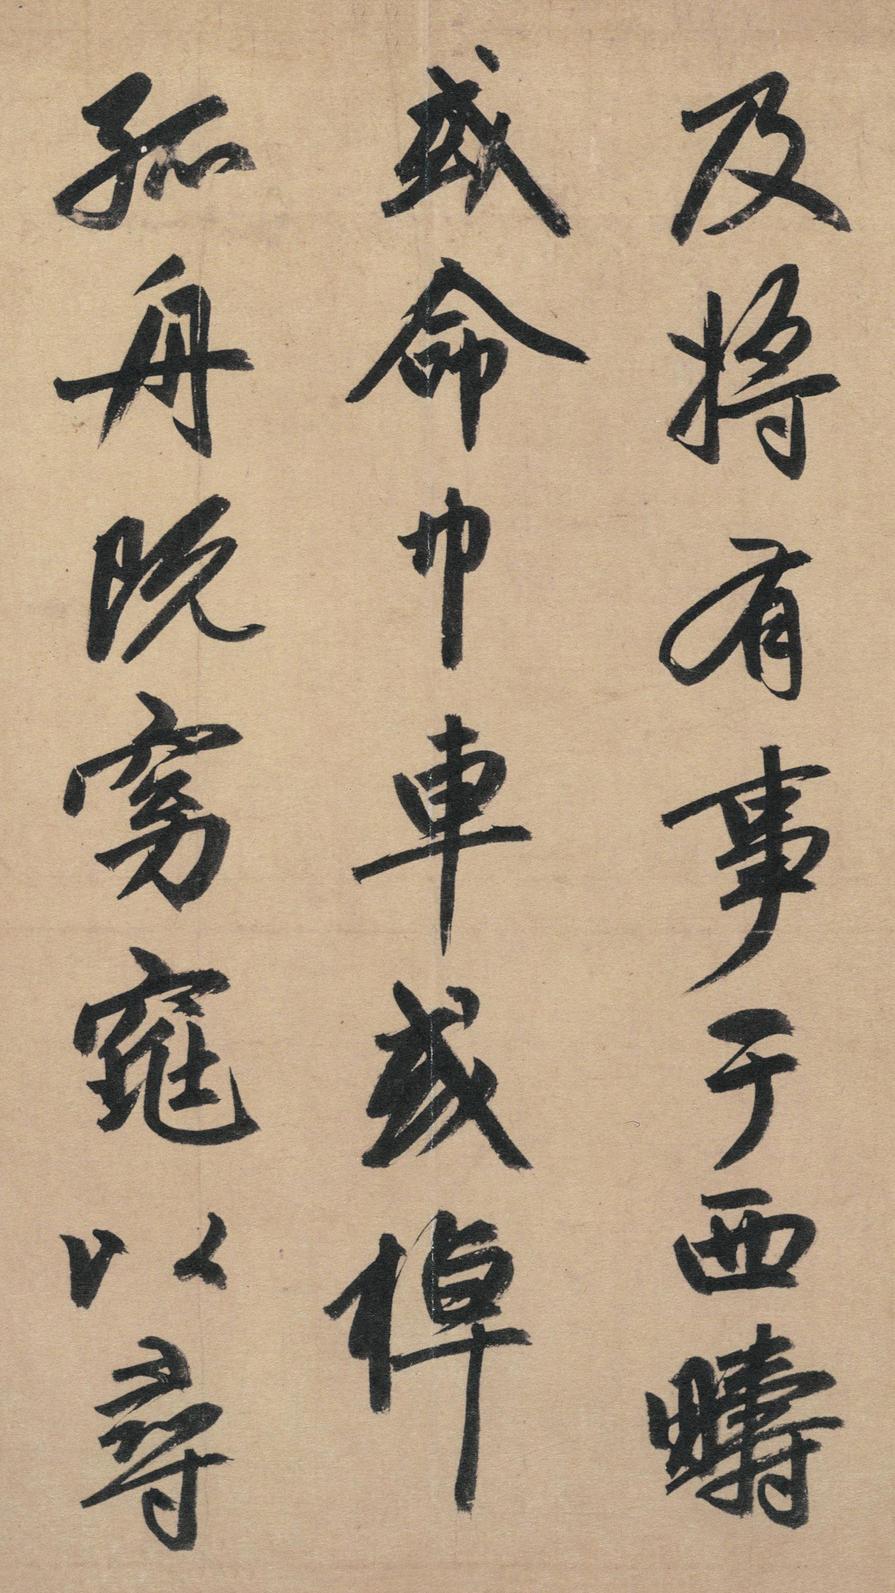 及將有事于西疇
或命巾車或棹
孤舟既窈窕以尋